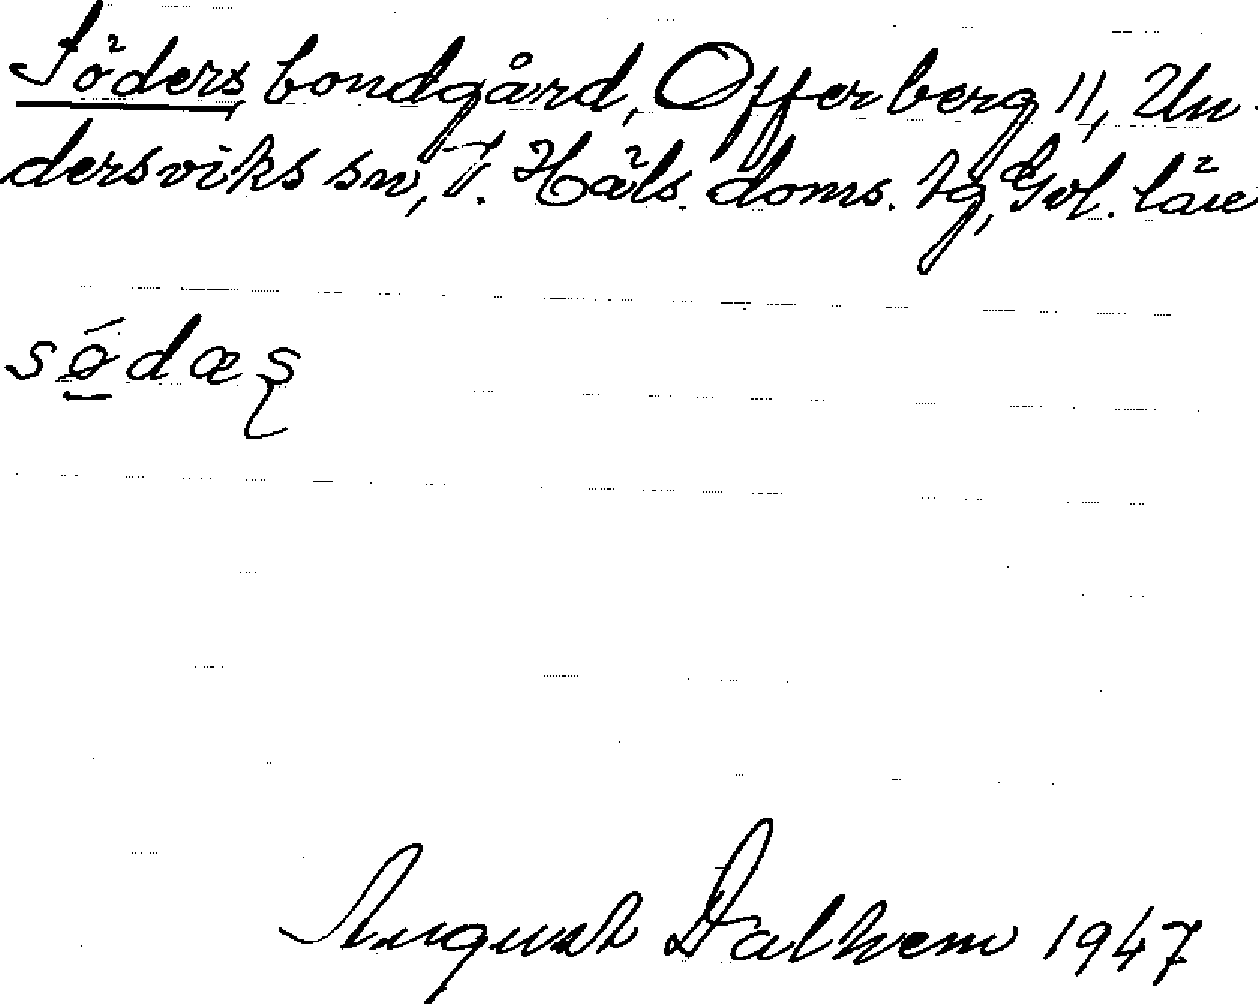 Söders bondgård, Offerberg 11, Un-
dersviks sn, V. Häls. doms. tg, Gvl. län
södæs
August Dalhem 1947